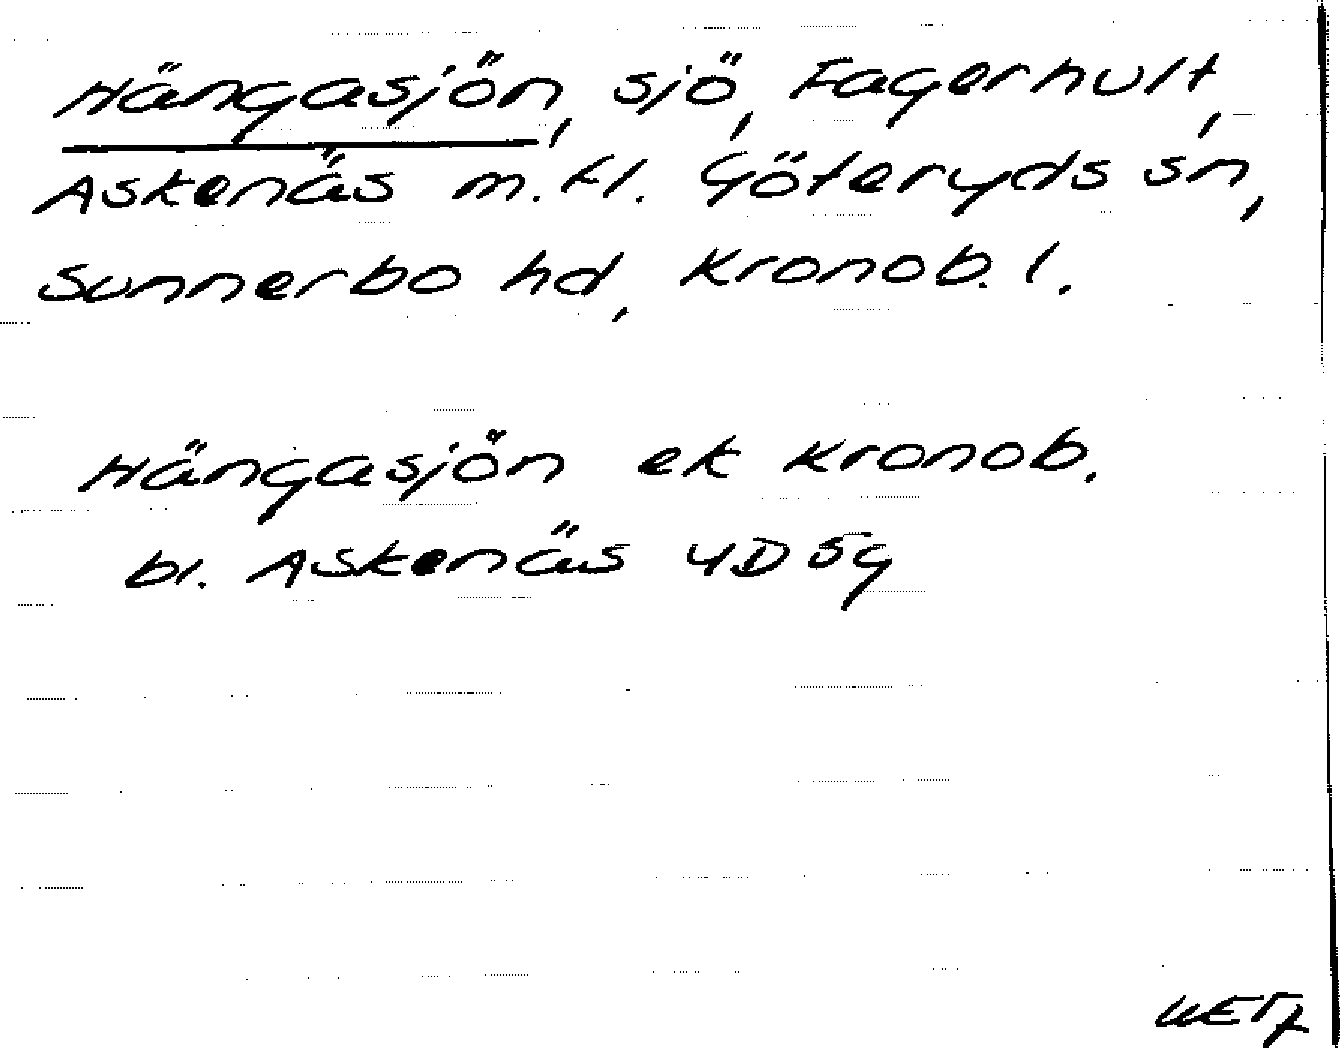 Hängasjön, sjö, Fagerhult,
Askenäs m.fl. Göteryds sn,
Sunnerbo hd, Kronob. l.
Hängasjön ek Kronob.
bl. Askenäs 4D5g